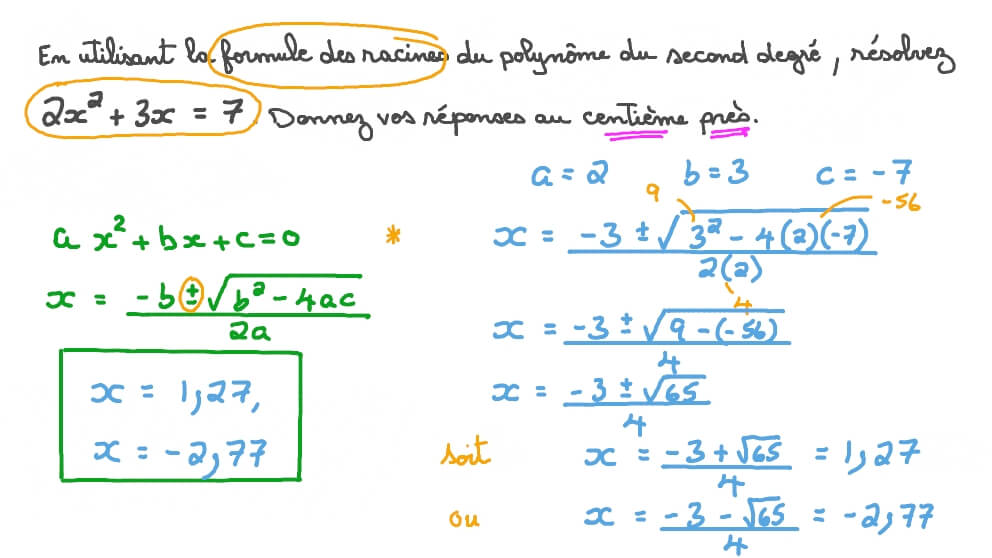 En utilisant la formule des racines du polynôme du second degré, résolvez
2x² + 3x = 7. Donnez vos réponses au centième près.
a = 2 b = 3 c = -7
ax² + bx + c = 0
x = (-b ± √(b² - 4ac)) / 2a
x = 1,27,
x = -2,77
* 9 -56
x = (-3 ± √(3² - 4(2)(-7))) / 2(2)
4
x = (-3 ± √(9 - (-56))) / 4
x = (-3 ± √65) / 4
soit x = (-3 + √65) / 4 = 1,27
ou x = (-3 - √65) / 4 = -2,77